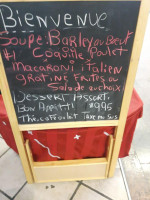 Bienvenue
Soupe: Barley ou Boeuf
#1 Coquille Poulet
Macaroni italien
gratiné Frites ou
Salade au choix
Dessert Assorti
Bon Appétit 995
Thé, café ou lait Taxe en sus